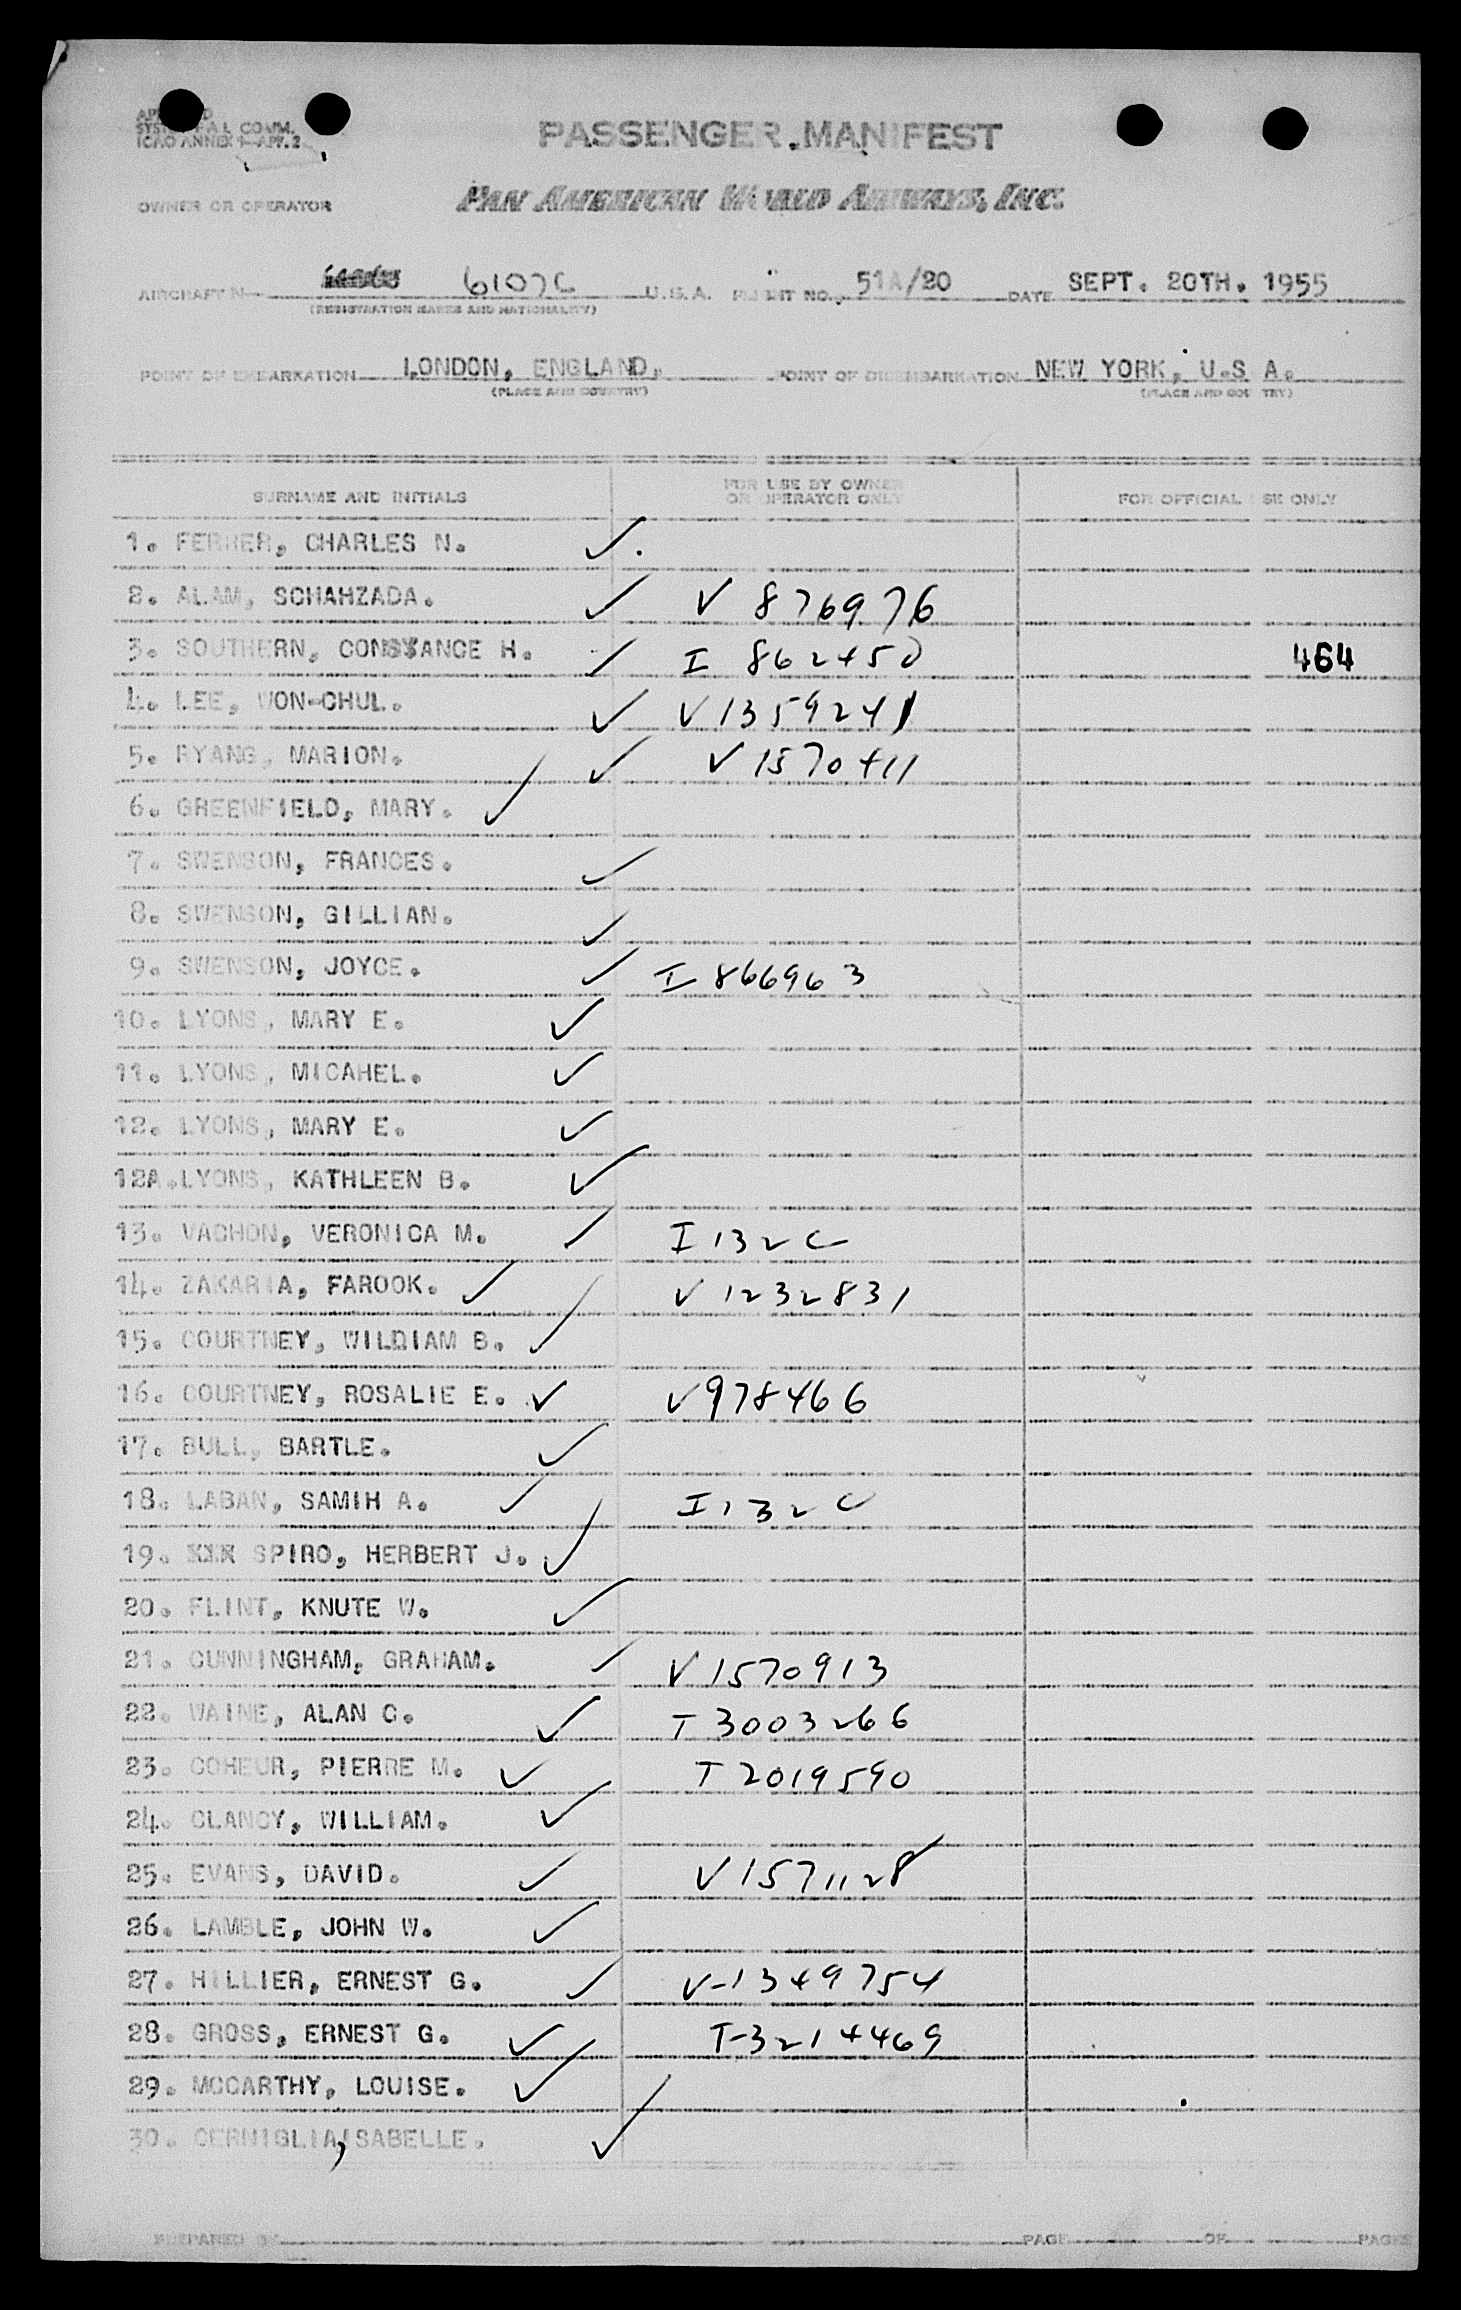 SYST FAL COMM.
ICAO ANNEX 9-APP. 2
PASSENGER MANIFEST
OWNER OR OPERATOR PAN AMERICAN WORLD AIRWAYS, INC.
AIRCRAFT N 6107C U.S.A. FLIGHT NO. 51A/20 DATE SEPT. 20TH. 1955
(REGISTRATION MARKS AND NATIONALITY)
POINT OF EMBARKATION LONDON, ENGLAND. POINT OF DISEMBARKATION NEW YORK, U.S A.
(PLACE AND COUNTRY) (PLACE AND COUNTRY)
SURNAME AND INITIALS FOR USE BY OWNER OR OPERATOR ONLY FOR OFFICIAL USE ONLY
1. FERRER, CHARLES N. ✓.
2. ALAM, SCHAHZADA. ✓ V 876976
3. SOUTHERN, CONSTANCE H. ✓ I 862450 464
4. LEE, WON-CHUL. ✓ V1359241
5. RYANG, MARION. ✓ V 1570411
6. GREENFIELD, MARY. ✓
7. SWENSON, FRANCES. ✓
8. SWENSON, GILLIAN. ✓
9. SWENSON, JOYCE. ✓ I 866963
10. LYONS, MARY E. ✓
11. LYONS, MICAHEL. ✓
12. LYONS, MARY E. ✓
12A. LYONS, KATHLEEN B. ✓
13. VACHON, VERONICA M. ✓ I 132 C
14. ZAKARIA, FAROOK. ✓ V 1232831
15. COURTNEY, WILLIAM B. ✓
16. COURTNEY, ROSALIE E. ✓ V978466
17. BULL, BARTLE. ✓
18. LABAN, SAMIH A. ✓ I 132 C
19. XXX SPIRO, HERBERT J. ✓
20. FLINT, KNUTE W. ✓
21. CUNNINGHAM, GRAHAM. ✓ V 1570913
22. WAINE, ALAN C. ✓ T 3003266
23. COHEUR, PIERRE M. ✓ T 2019590
24. CLANCY, WILLIAM. ✓
25. EVANS, DAVID. ✓ V 1571128
26. LAMBLE, JOHN W. ✓
27. HILLIER, ERNEST G. ✓ V-1349754
28. GROSS, ERNEST G. ✓ T-3214469
29. MCCARTHY, LOUISE. ✓
30. CERNIGLIA, ISABELLE. ✓
PREPARED BY PAGE OF PAGES